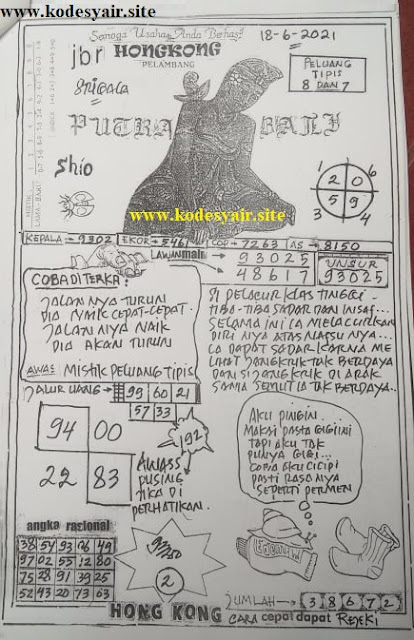 www.kodesyair.site
Semoga Usaha Anda Berhasil
18-6-2021
jbr HONGKONG
PELAMBANG
Srigala
PELUANG
TIPIS
8 DAN 7
PUTRA BALI
Shio
1 6
2 0
5 9
3 4
www.kodesyair.site
KEPALA → 9302 EKOR → 5461 COP → 7263 AS → 8150
LAWAN mati
93025
48617
UNSUR
93025
COBA DI TERKA:
JALAN NYA TURUN
DIA NAIK CEPAT-CEPAT.
JALAN NYA NAIK
DIA AKAN TURUN
AWAS MISTIK PELUANG TIPIS
SI PELACUR KLAS TINGGI.
TIBA-TIBA SADAR DAN INSAF...
SELAMA INI IA MELACURKAN
DIRI NYA ATAS NAFSU NYA...
IA DAPAT SADAR KARNA ME
LIHAT JANGKRIK TAK BERDAYA
DAN SI JANGKRIK DI ARAK
SAMA SEMUT IA TAK BERDAYA..
JALUR UANG → 99 60 21
57 33
94 00
22 83
192
AWASS
PUSING
JIKA DI
PERHATIKAN.
AKU PINGIN...
MAKSI PASTA GIGI INI
TAPI AKU TAK
PUNYA GIGI...
COBA AKU CICIPI
PASTI RASA NYA
SEPERTI PERMEN
angka rasional
38 54 93 26 49
97 02 55 12 80
75 28 91 39 25
52 43 20 73 63
2
HONG KONG
JUMLAH → 3 8 6 7 2
CARA cepat dapat REJEKI